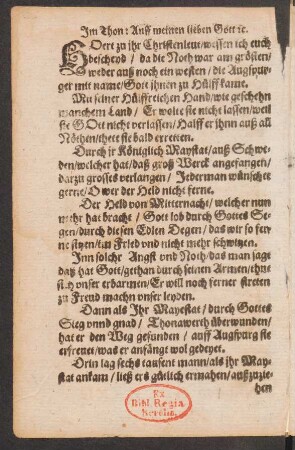 Im Thon: Auff meinen lieben Gott ꝛc.
HOert zu jhr Christenleut/ wessen ich euch
bescheyd / da die Noth war am grösten/
weder auß noch ein westen / die Augspur-
ger mit name/ Gott jhnen zu Hülff kame.
Mit seiner Hülffreichen Hand/ wie geschehn
manchem Land / Er wolte sie nicht lassen/ weil
sie GOtt nicht verlassen/ Halff er jhnn auß all
Nöthen/ thett sie bald erretten.
Durch jr Königlich Maystat/ auß Schwe-
den/ welcher hat/ daß groß Werck angefangen/
darzu grosses verlangen / Jederman wünschet
gerne/ O wer der Held nicht ferne.
Der Held von Mitternacht/ welcher nun
mehr hat bracht / Gott lob durch Gottes Se-
gen/ durch diesen Edlen Degen/ das wir so fer-
ne sitzen/ im Fried vnd nicht mehr schwitzen.
Inn solchr Angst vnd Noth/ das man jagt
das hat Gott/ gethan durch seinen Armen/ thut
sich vnser erbarmen/ Er will noch ferner streten
zu Freud machn vnser leyden.
Dann als Ihr Mayestat / durch Gottes
Sieg vnnd gnad / Thonawerth überwunden/
hat er den Weg gefunden / auff Augspurg sie
erfreuet/ was er anfängt wol gedeyet.
Drin lag sechs tausent mann/ als jhr May-
stat ankam / ließ ers gütlich ermahen/ außzuzie-
hen
Ex
Bibl. Regia
Berolin.